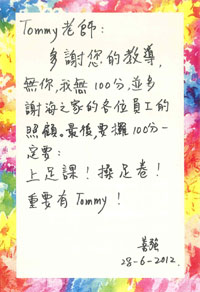 Tommy老師：
多謝您的教導，
無你，我無100分，並多
謝海之家的各位員工的
照顧。最後，要攞100分一
定要：
上足課！操足卷！
重要有Tommy！
28-6-2012